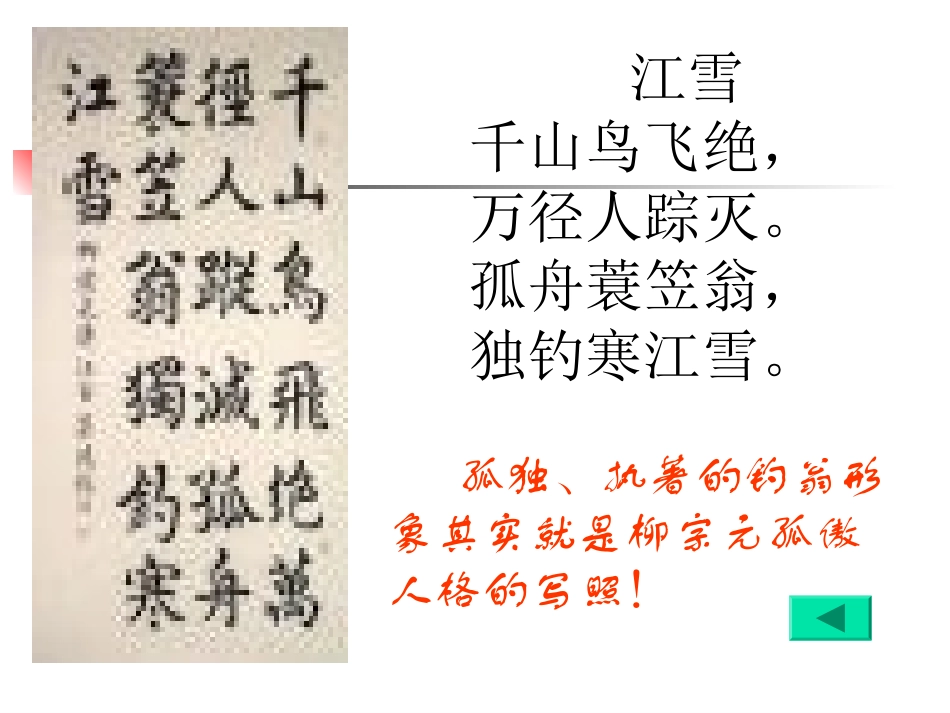 千山鳥飛絶萬
徑人蹤滅孤舟
蓑笠翁獨釣寒
江雪
江雪
千山鸟飞绝，
万径人踪灭。
孤舟蓑笠翁，
独钓寒江雪。
孤独、执著的钓翁形
象其实就是柳宗元孤傲
人格的写照！